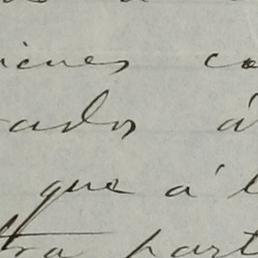 ienes co
rados á
que á l
tra part